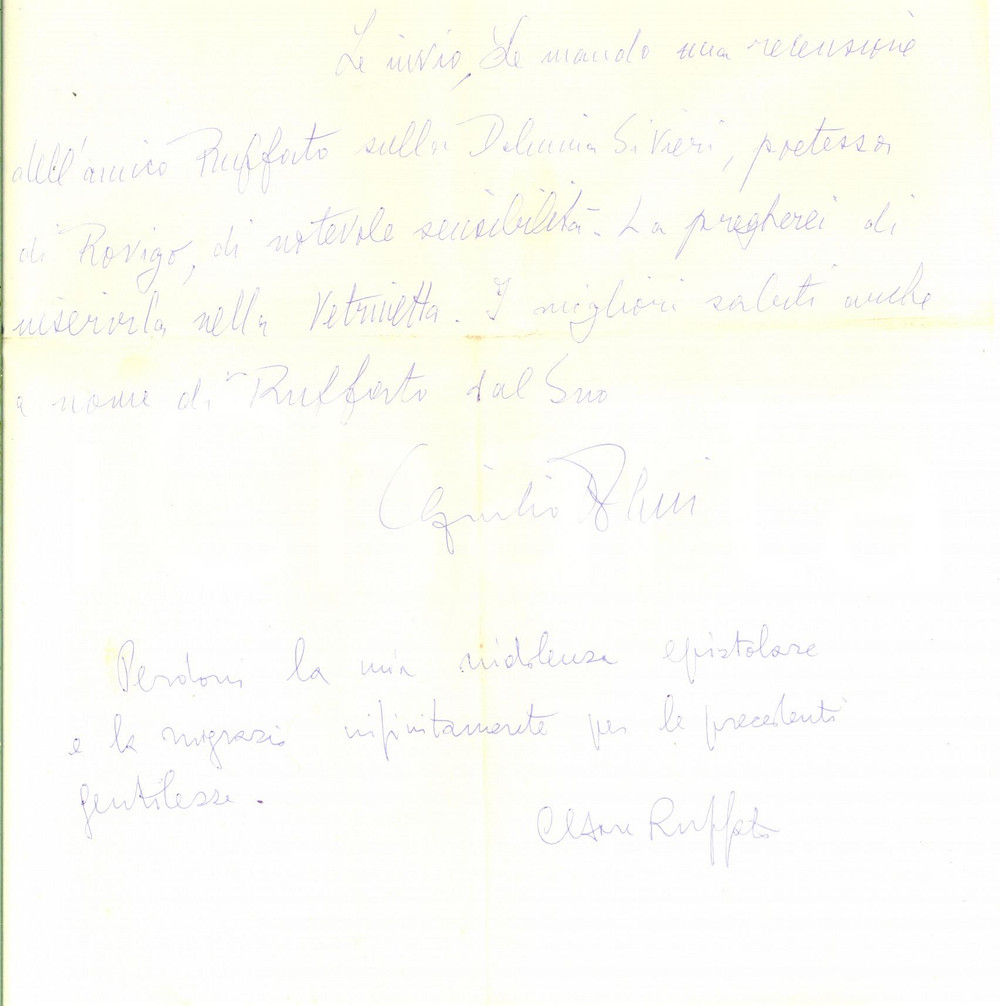 Le invio, Le mando una recensione
dell'amico Ruffato sulla Dalmina Sivieri, poetessa
di Rovigo, di notevole sensibilità. La pregherei di
inserirla nella Vetrinetta. I migliori saluti anche
a nome di Ruffato dal Suo
Perdoni la mia indolenza epistolare
e la ringrazio infinitamente per le precedenti
gentilezze.
Cesare Ruffato